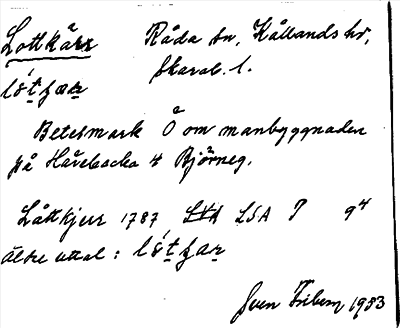 Lottkärr Råda sn, Kållands hd,
Skarab. l.
ló̀tɕær
Betesmark Ö om manbyggnaden
på Håsbacka 4 Björneg.
Låttkjerr 1787 LSA P 9⁴
äldre uttal : ló̀tɕar
Sven Friberg 1953